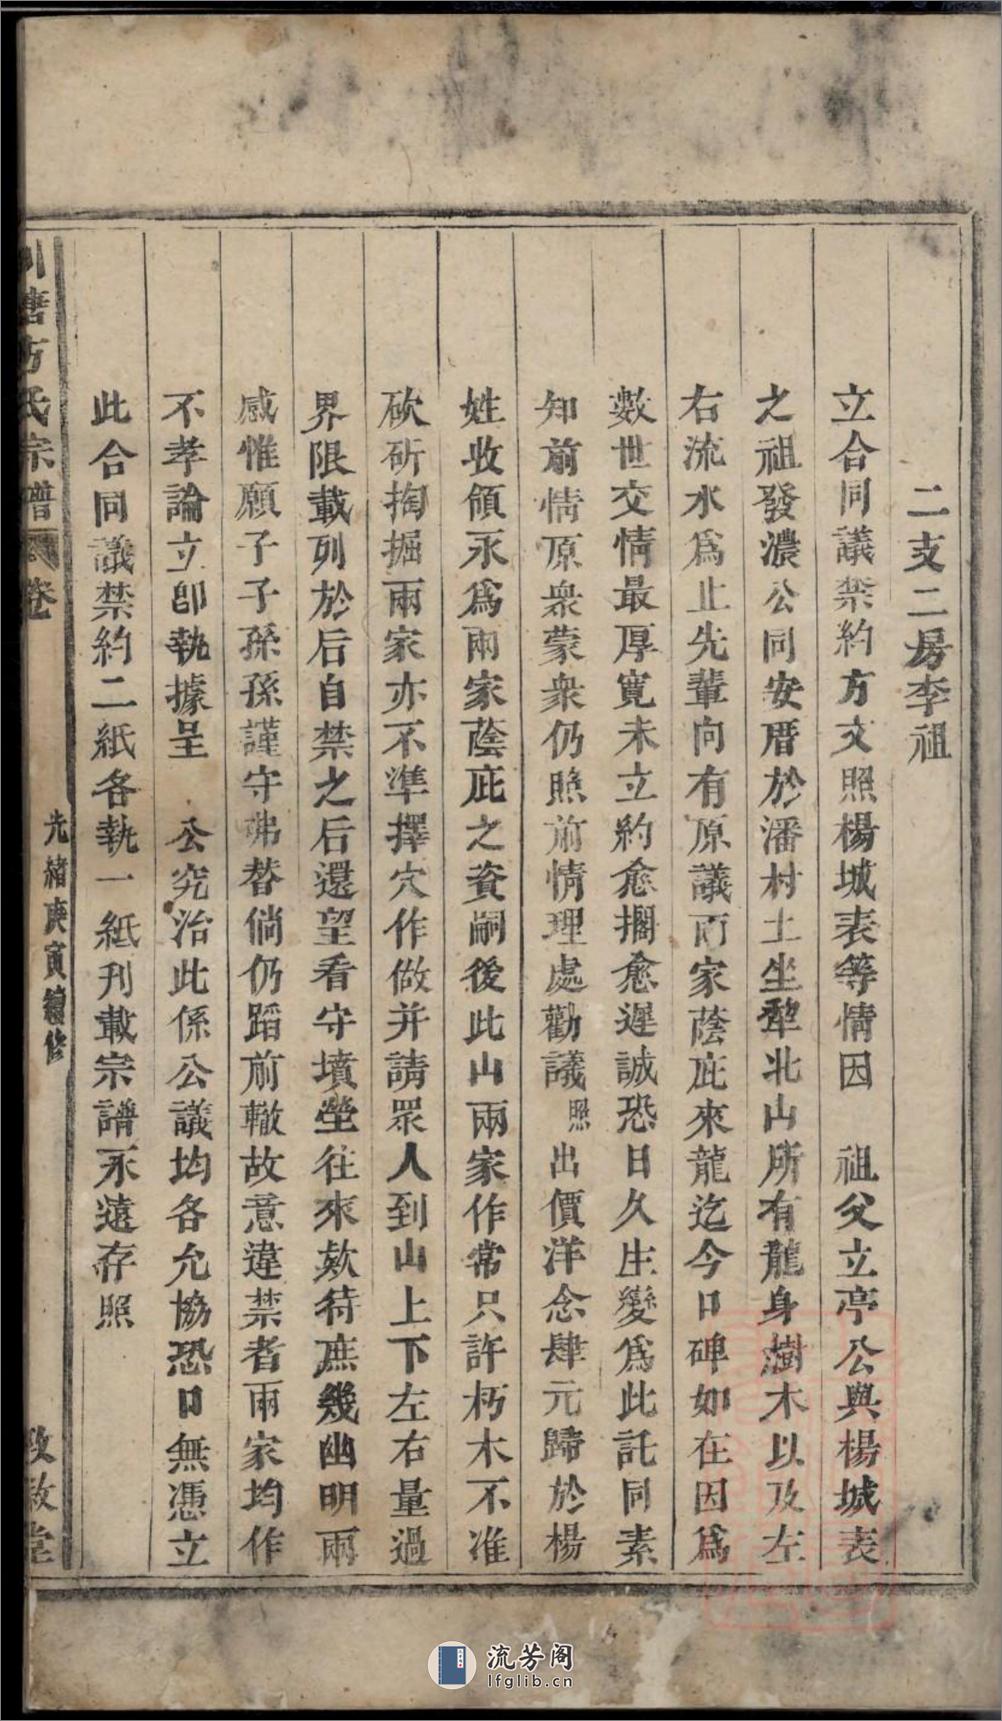 二支二房李祖
立合同議禁約方文照楊城表等情因 祖父立亭公與楊城表
之祖發濃公同安厝於潘村土坐犂北山所有龍身樹木以及左
右流水爲止先輩向有原議兩家蔭庇來龍迄今口碑如在因爲
數世交情最厚寬未立約愈擱愈遲誠恐日久生變爲此託同素
知前情原衆蒙衆仍照前情理處勸議照出價洋念肆元歸於楊
姓收領永爲兩家蔭庇之資嗣後此山兩家作常只許朽木不准
砍斫掏掘兩家亦不準擇穴作做并請眾人到山上下左右量過
界限載列於后自禁之后還望看守墳塋往來欵待庶幾幽明兩
感惟願子子孫孫謹守弗替倘仍蹈前轍故意違禁者兩家均作
不孝論立卽執據呈 公究治此係公議均各允協恐口無憑立
此合同議禁約二紙各執一紙刊載宗譜永遠存照
塘方氏宗譜 卷
光緒庚寅續修
敘堂
流芳阁
lfglib.cn